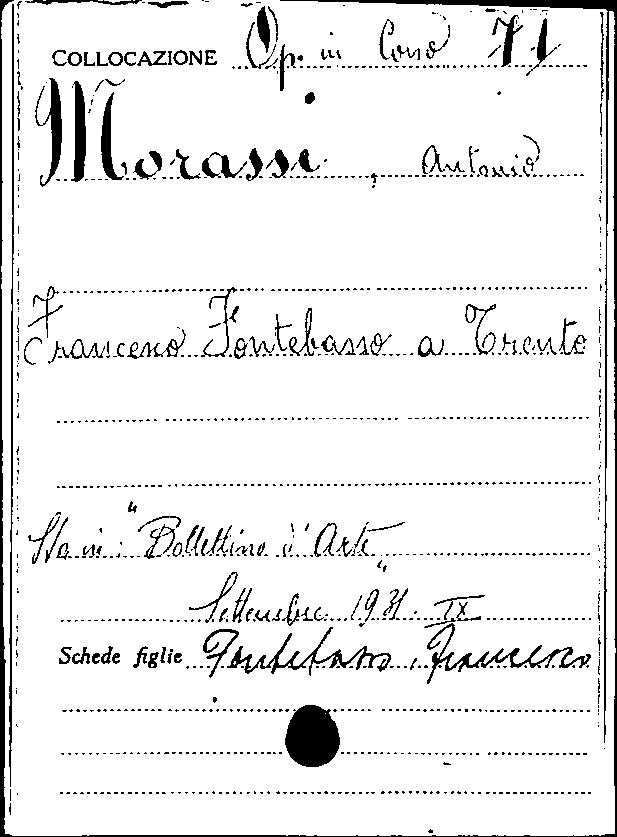 COLLOCAZIONE Op. in Corso 71
Morassi, Antonio
Francesco Fontebasso a Trento
Sta in: "Bollettino d'Arte"
Settembre 1931. IX
Schede figlie Fontebasso, Francesco